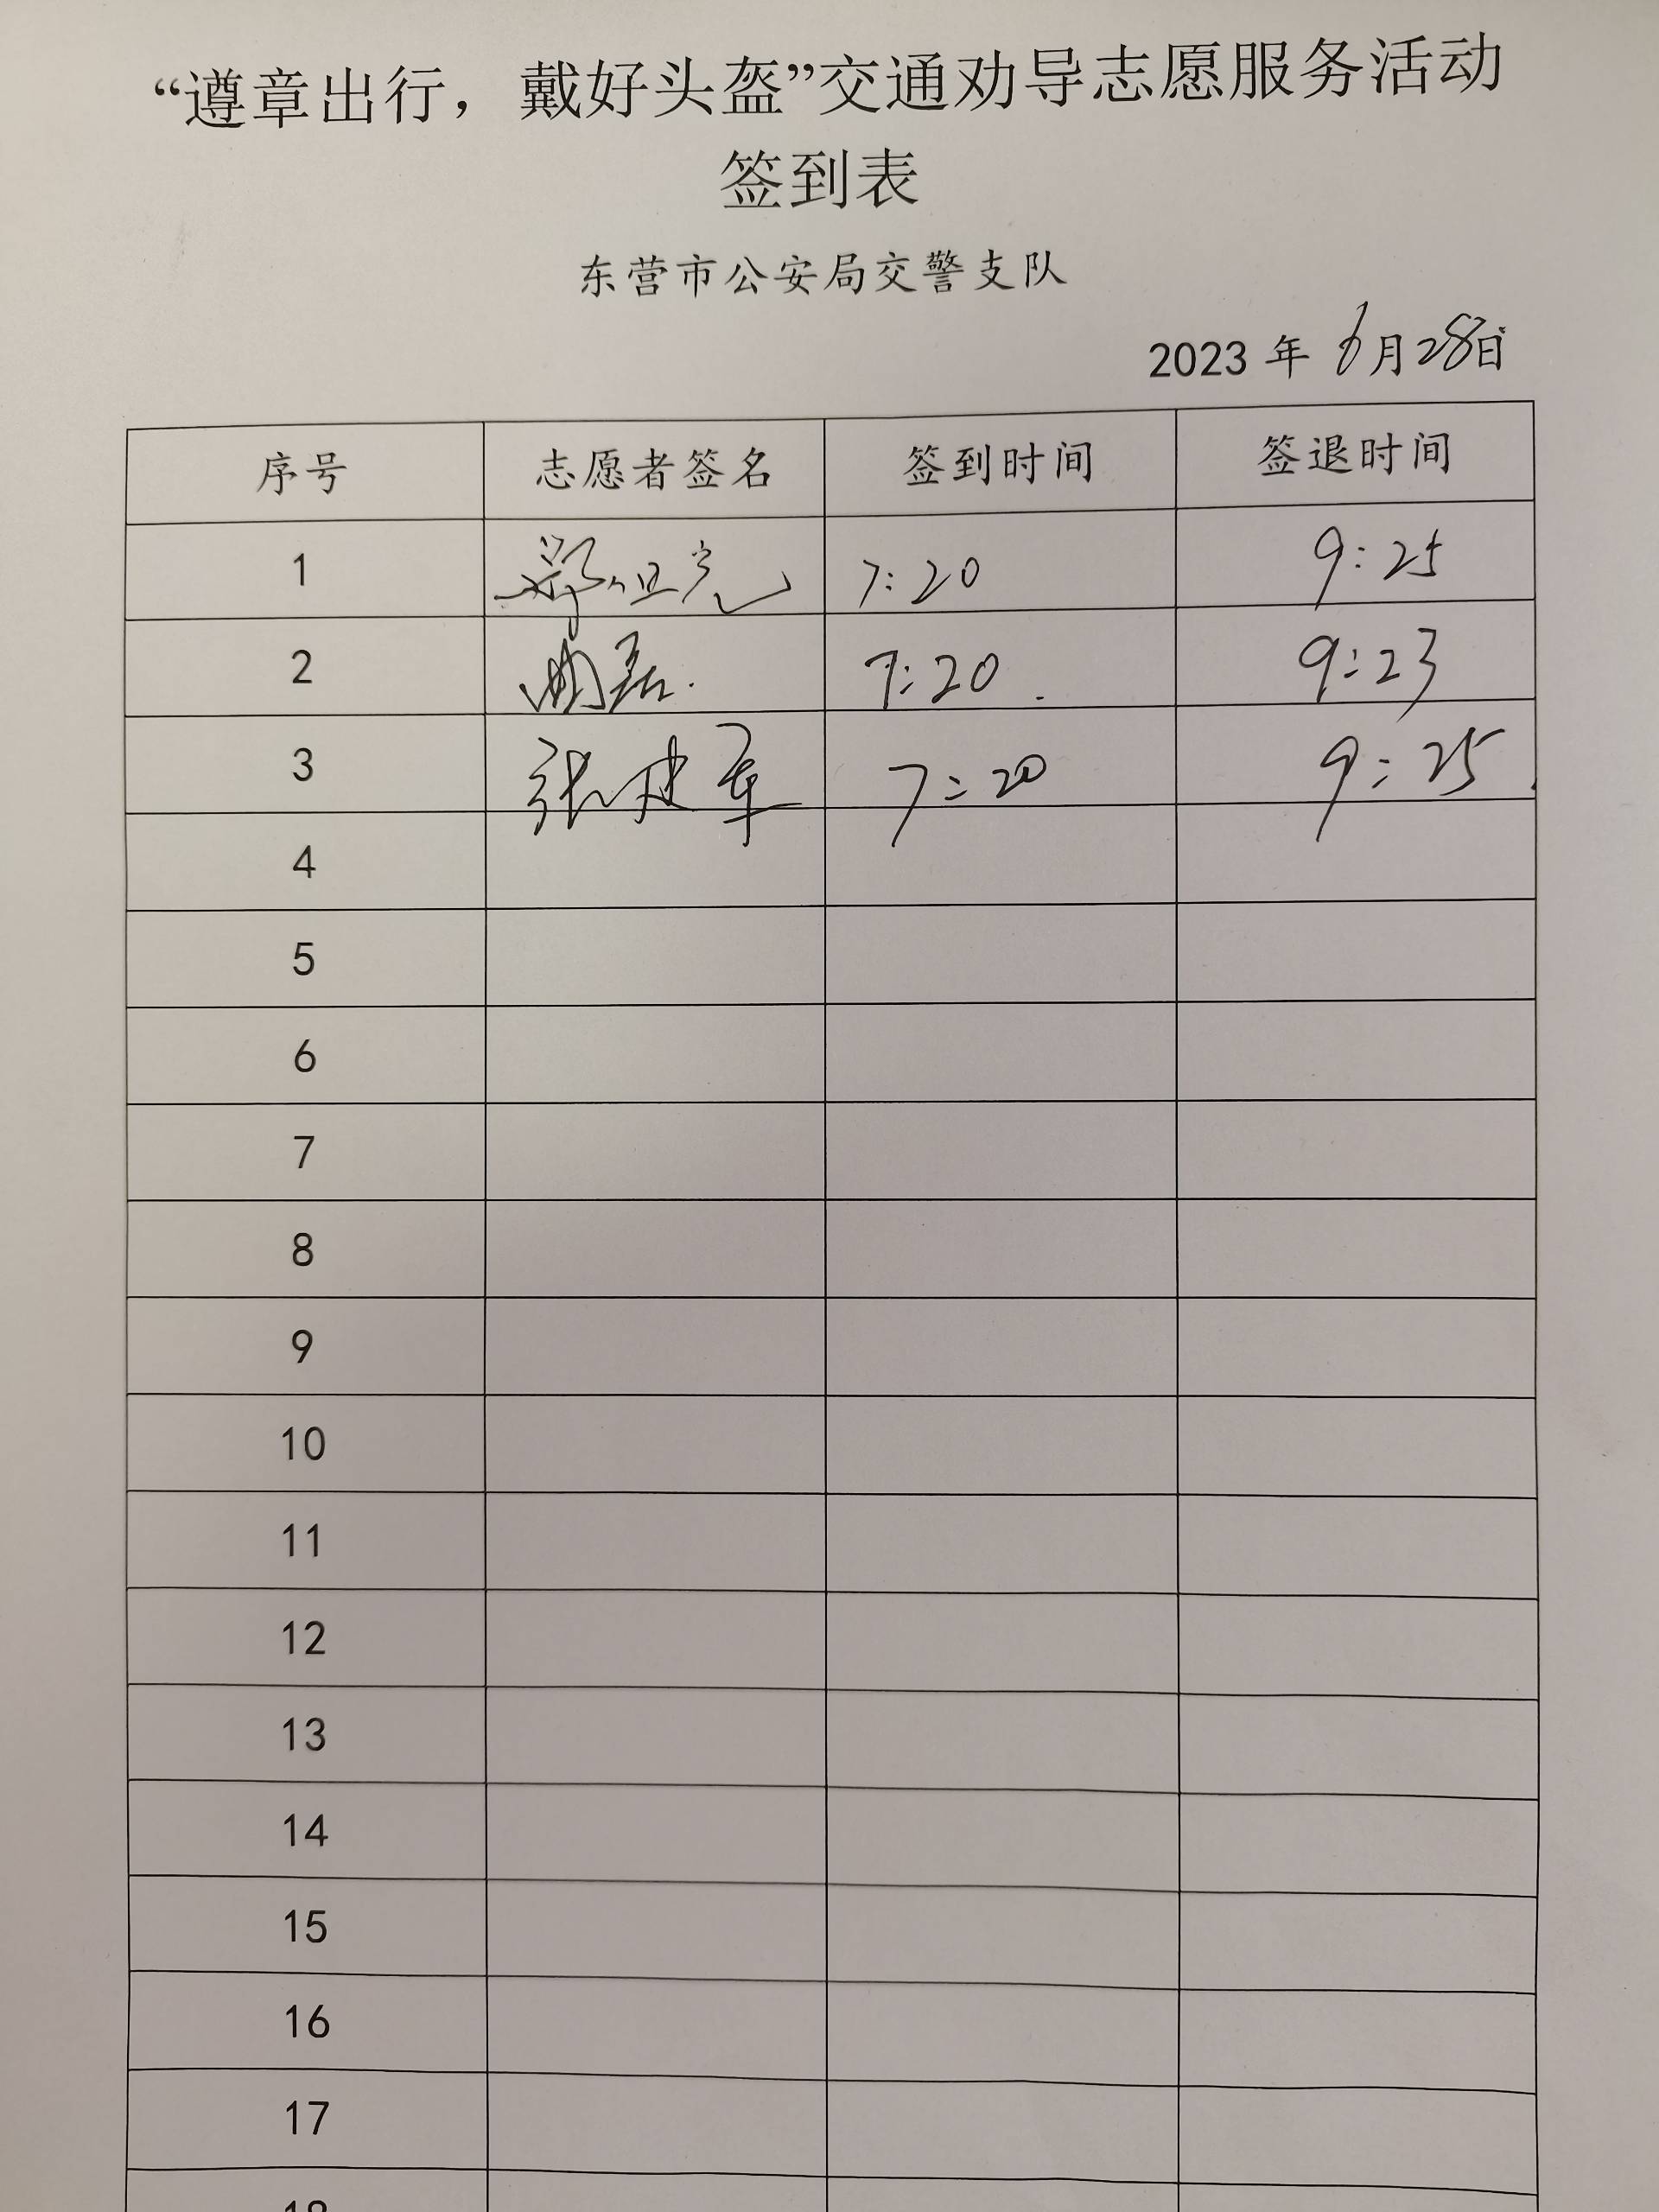 “遵章出行，戴好头盔”交通劝导志愿服务活动
签到表
东营市公安局交警支队
2023 年 6月28日
序号 志愿者签名 签到时间 签退时间
1 7:20 9:25
2 曲磊. 7:20. 9:23
3 张建军 7:20 9:25
4
5
6
7
8
9
10
11
12
13
14
15
16
17
18